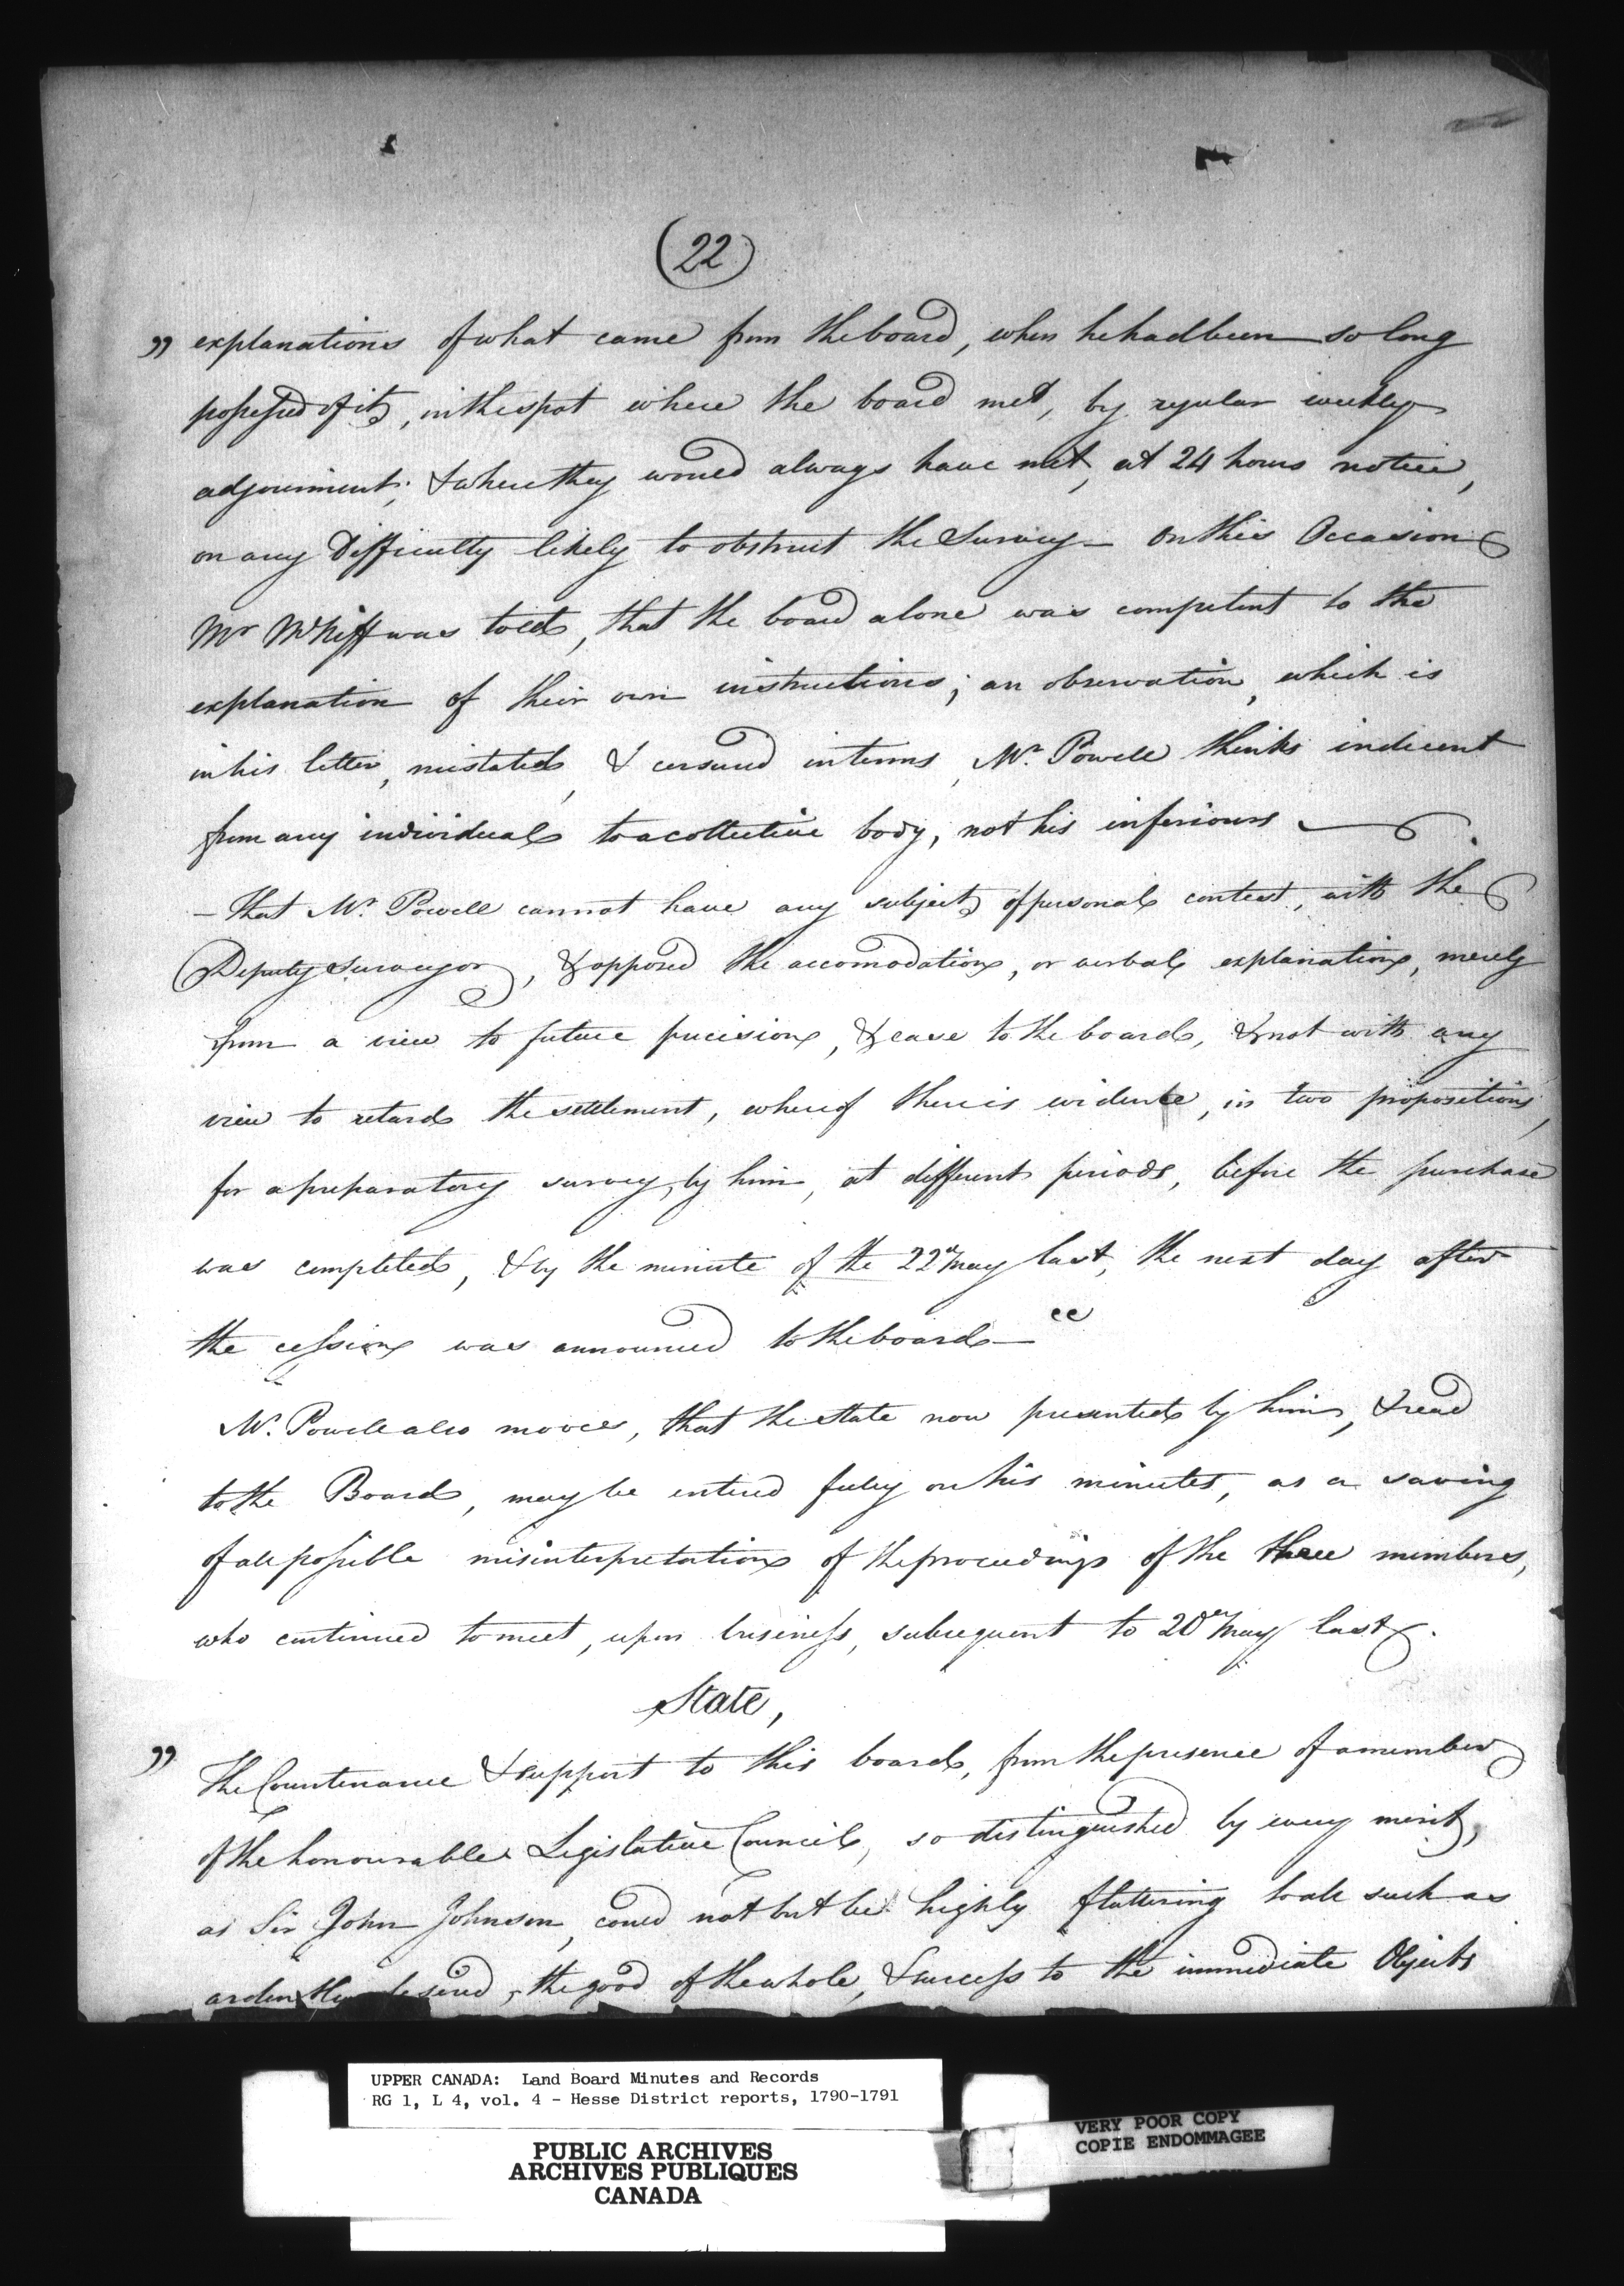 (22)
" explanations of what came from the board, when he had been so long
possessed of it, in the spot where the board met, by regular weekly
adjournment; & where they would always have met, at 24 hours notice,
on any Difficulty likely to obstruct the Survey — On this Occasion
Mr McNiff was told, that the board alone was competent to the
explanation of their own instructions; an observation, which is
in his letter, mistated, & censured in terms, Mr. Powell thinks indecent
from any individual to a collective body, not his inferiours —
— that Mr. Powell cannot have any subject of personal contest, with the
Deputy Surveyor, & opposed the accomodation, or verbal explanation, merely
from a view to future precision, & ease to the board, & not with any
view to retard the settlement, whereof there is evidence, in two propositions,
for a preparatory survey, by him, at different periods, before the purchase
was completed, & by the minute of the 22d May last, the next day after
the cession was announced to the board — "
Mr. Powell also mooves, that the State now presented by him, & read
to the Board, may be entered fully on his minutes, as a saving
of all possible misinterpretation of the proceedings of the three members,
who continued to meet, upon business, subsequent to 20th May last.
State,
" The Countenance & support to this board, from the presence of a member
of the honourable Legislative Council, so distinguished by every merit,
as Sir John Johnson, could not but be highly flattering to all such as
ardently desired, the good of the whole, & success to the immediate Objects
UPPER CANADA: Land Board Minutes and Records
RG 1, L 4, vol. 4 - Hesse District reports, 1790-1791
PUBLIC ARCHIVES
ARCHIVES PUBLIQUES
CANADA
VERY POOR COPY
COPIE ENDOMMAGEE